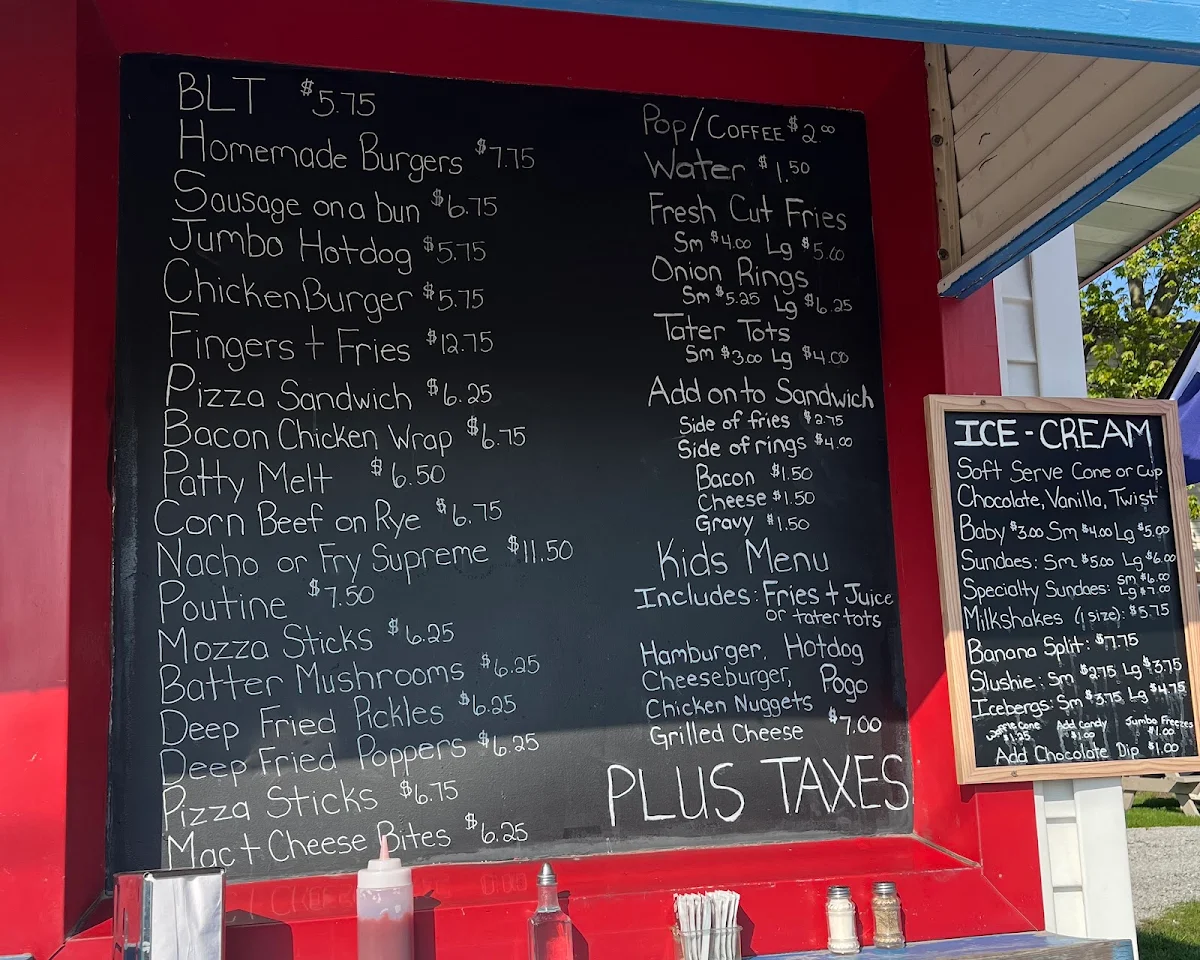 BLT $5.75
Homemade Burgers $7.75
Sausage on a bun $6.75
Jumbo Hotdog $5.75
Chicken Burger $5.75
Fingers + Fries $12.75
Pizza Sandwich $6.25
Bacon Chicken Wrap $6.75
Patty Melt $6.50
Corn Beef on Rye $6.75
Nacho or Fry Supreme $11.50
Poutine $7.50
Mozza Sticks $6.25
Batter Mushrooms $6.25
Deep Fried Pickles $6.25
Deep Fried Poppers $6.25
Pizza Sticks $6.75
Mac + Cheese Bites $6.25
Pop/Coffee $2.00
Water $1.50
Fresh Cut Fries
Sm $4.00 Lg $5.00
Onion Rings
Sm $5.25 Lg $6.25
Tater Tots
Sm $3.00 Lg $4.00
Add on to Sandwich
Side of fries $2.75
Side of rings $4.00
Bacon $1.50
Cheese $1.50
Gravy $1.50
Kids Menu
Includes: Fries + Juice
or tater tots
Hamburger, Hotdog
Cheeseburger, Pogo
Chicken Nuggets
Grilled Cheese $7.00
PLUS TAXES
ICE-CREAM
Soft Serve Cone or Cup
Chocolate, Vanilla, Twist
Baby $3.00 Sm $4.00 Lg $5.00
Sundaes: Sm $5.00 Lg $6.00
Specialty Sundaes: Sm $6.00
Lg $7.00
Milkshakes (1 size): $5.75
Banana Split: $7.75
Slushie: Sm $2.75 Lg $3.75
Icebergs: Sm $3.75 Lg $4.75
Cone Add Candy Jumbo Freezes
$1.25 $1.00 $1.00
Add Chocolate Dip $1.00